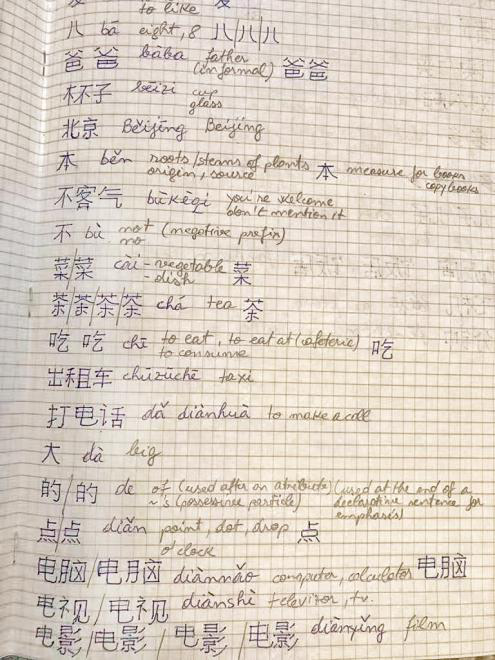 to like
八 bā eight, 8 八/八/八
爸爸 bàba father
(informal) 爸爸
杯子 bēizi cup
glass
北京 Běijīng Beijing
本 běn roots/stems of plants 本 measure for books
origin, source copybooks
不客气 bùkèqi you're welcome
don't mention it
不 bù not (negative prefix)
no
菜/菜 cài - vegetable 菜
- dish
茶/茶/茶/茶 chá tea 茶
吃 吃 chī to eat, to eat at (cafeteria) 吃
to consume
出租车 chūzūchē taxi
打电话 dǎ diànhuà to make a call
大 dà big
的/的 de of (used after an atribute) (used at the end of a
~'s (possessive particle) declarative sentence for
emphasis)
点/点 diǎn point, dot, drop 点
o'clock
电脑/电脑 diànnǎo computer, calculator 电脑
电视/电视 diànshì televizor, tv.
电影/电影/电影/电影 diànyǐng film